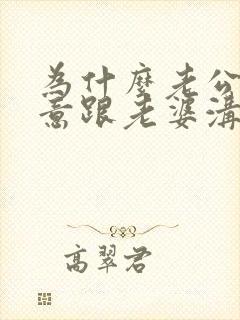 為什麼老公
意跟老婆溝
高翠君